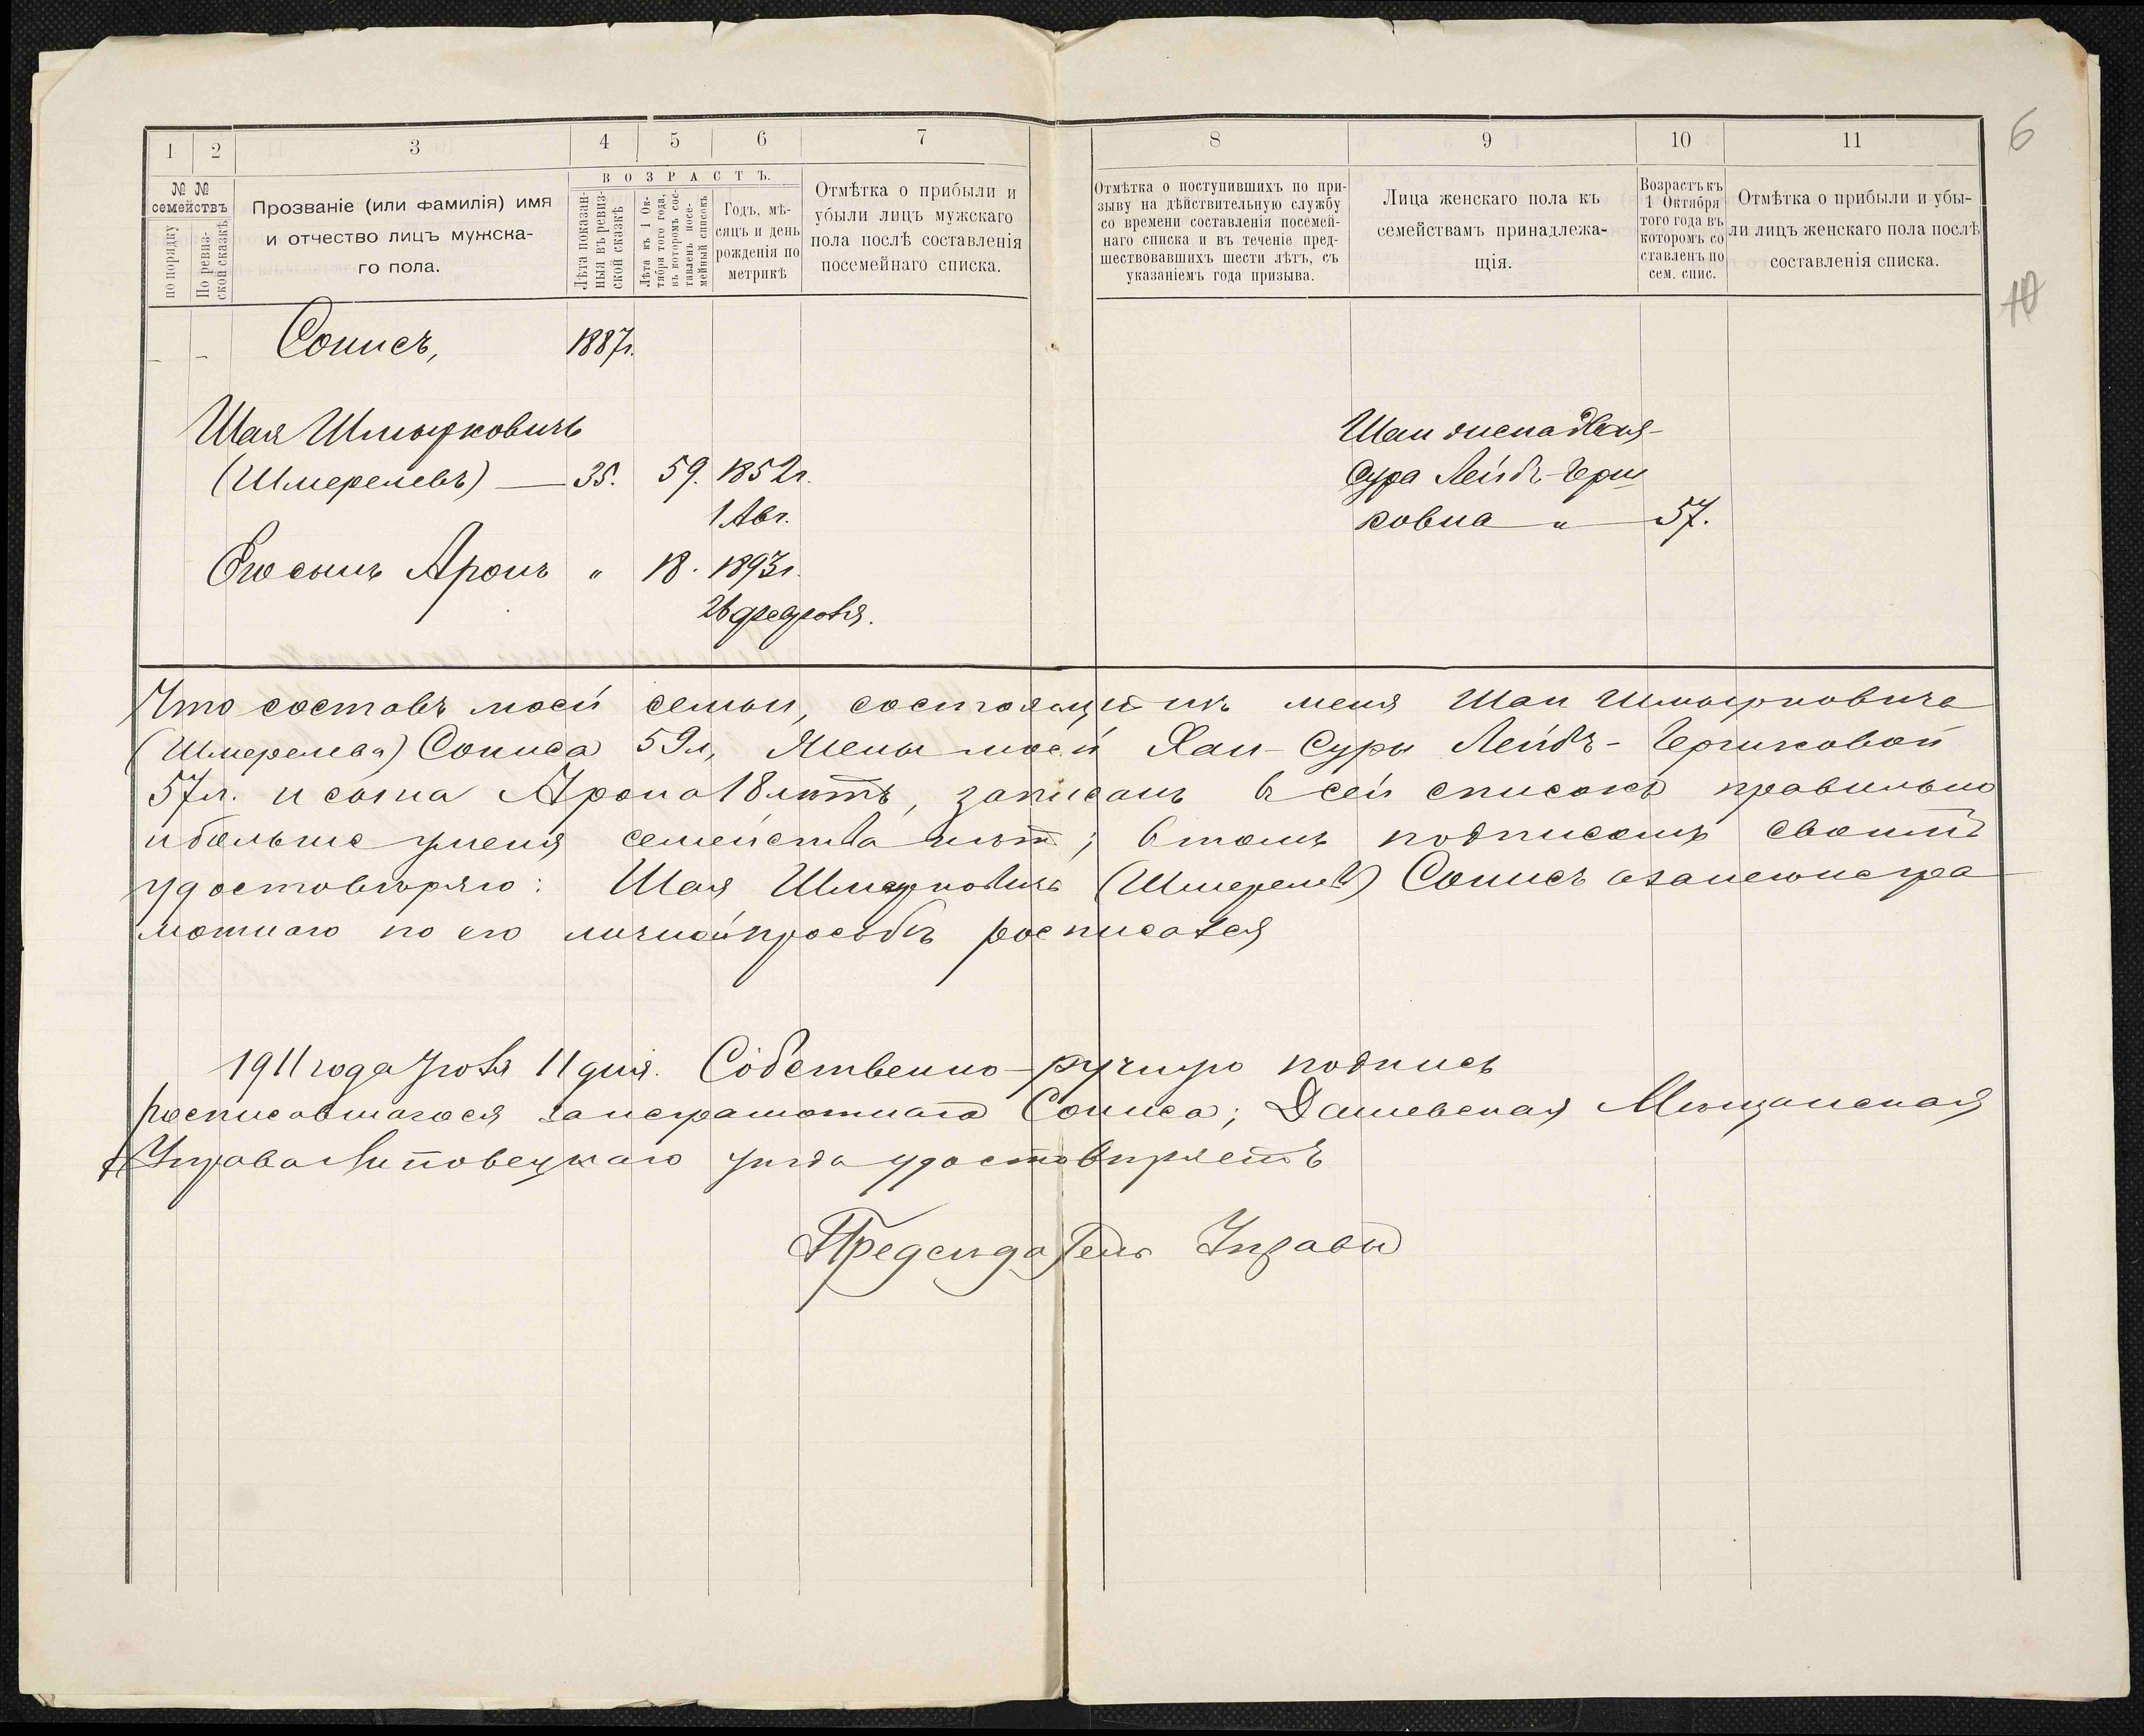 1
2
3
4
5
6
7
8
9
10
11
6
10
№ №
семействъ
по порядку
По ревиз-
ской сказкѣ
Прозваніе (или Фамилія) имя
и отчество лицъ мужска-
го пола.
ВОЗРАСТЪ.
Лѣта показан-
ныя въ ревиз-
ской сказкѣ
Лѣта къ 1 Ок-
тября того года,
въ которомъ сос-
тавленъ посе-
мейный списокъ
Годъ, мѣ-
сяцъ и день
рожденія по
метрикѣ
Отмѣтка о прибыли и
убыли лицъ мужскаго
пола послѣ составленія
посемейнаго списка.
Отмѣтка о поступившихъ по при-
зыву на дѣйствительную службу
со времени составленія посемей-
наго списка и въ теченіе пред-
шествовавшихъ шести лѣтъ, съ
указаніемъ года призыва.
Лица женскаго пола къ
семействамъ принадлежа-
щія.
Возрастъ къ
1 Октября
того года въ
которомъ со
ставленъ по
сем. спис.
Отмѣтка о прибыли и убы-
ли лицъ женскаго пола послѣ
составленія списка.
- - Сонисъ, 1887г.
Шая Шмырковичъ
(Шмерелевъ) — 35. 59. 1852г.
1 Авг.
Его сынъ Аронъ " 18. 1893г.
26 февраля.
Шаи жена Хая-
Сура Лейбъ-Герш
ковна " — 57.
Что составъ моей семьи, состоящій изъ меня Шаи Шмырковича
(Шмерелева) Сониса 59л, Жены моей Хаи-Суры Лейбъ-Гершковой
57л. и сына Арона 18 лѣтъ, записанъ в сей списокъ правильно
и больше у меня семейства нѣт; в томъ подписомъ своимъ
удостовѣряю: Шая Шмырковичъ (Шмерелевъ) Сонисъ а за неюнегра
мотнаго по его личной просьбѣ росписался
1911 года 11 дня. Собственно-ручную подпись
росписавшагося за неграмотнаго Сониса; Дашевская Мѣщанская
Управа Липовецкаго уѣзда удостовѣряетъ
Предсѣдатель Управы